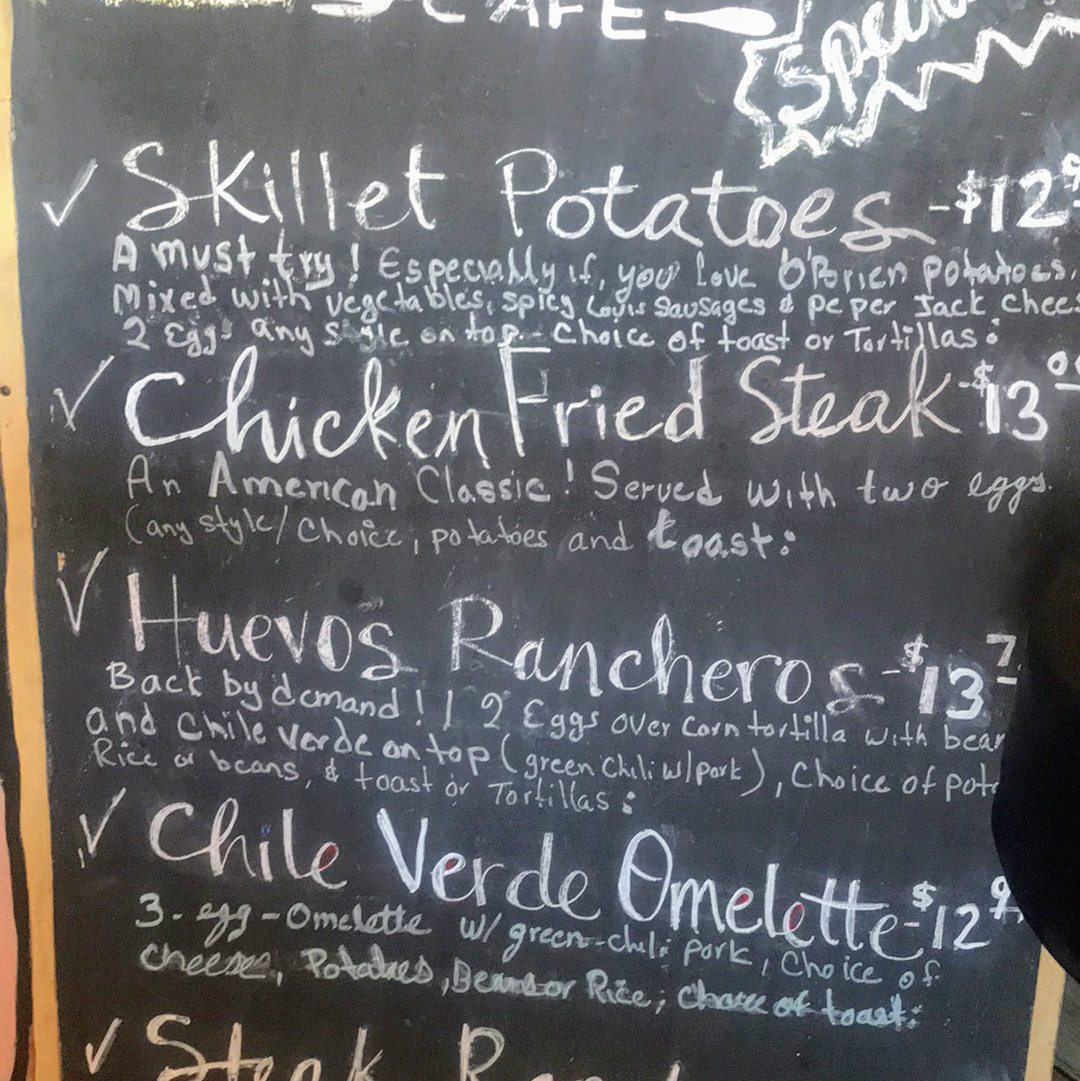 CAFE
Special
✓ Skillet Potatoes - $12
A must try! Especially if, you love O'Brien potatoes.
Mixed with vegetables, spicy Louis Sausages & peper Jack Chees
2 Eggs any style on top - Choice of toast or Tortillas:
✓ Chicken Fried Steak - $13
An American Classic! Served with two eggs.
(any style/Choice, potatoes and toast:
✓ Huevos Rancheros - $13 7
Back by demand! / 2 Eggs over corn tortilla with bean
and Chile Verde on top (green Chili w/pork), Choice of pota
Rice or beans, & toast or Tortillas:
✓ Chile Verde Omelette - $12 9
3-egg-Omelette w/ green-chili pork, Choice of
cheese, Potatoes, Beans or Rice; Choice of toast:
✓ Steak